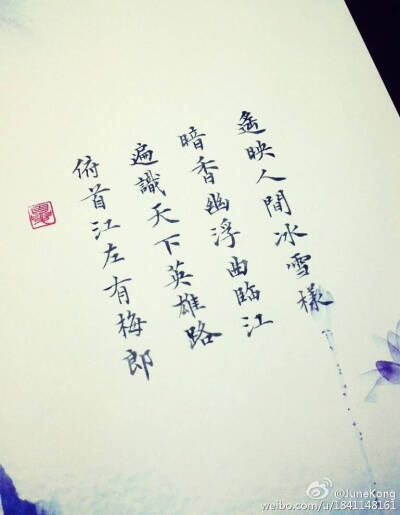 遙映人間冰雪樣
暗香幽浮曲臨江
遍識天下英雄路
俯首江左有梅郎
@JuneKong
weibo.com/u/1841148161